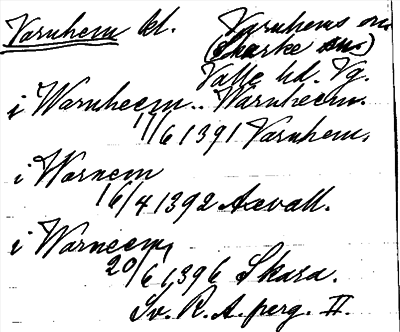 Varnhem kl. Varnhems sn.
(Skarke sn.)
Valle hd. Vg.
i Warnheem.. Warnheem.
11/6 1391 Varnhem.
i Warnem
16/4 1392 Axvall.
i Warneem,
20/6 1396 Skara.
Sv. R. A. perg. II.